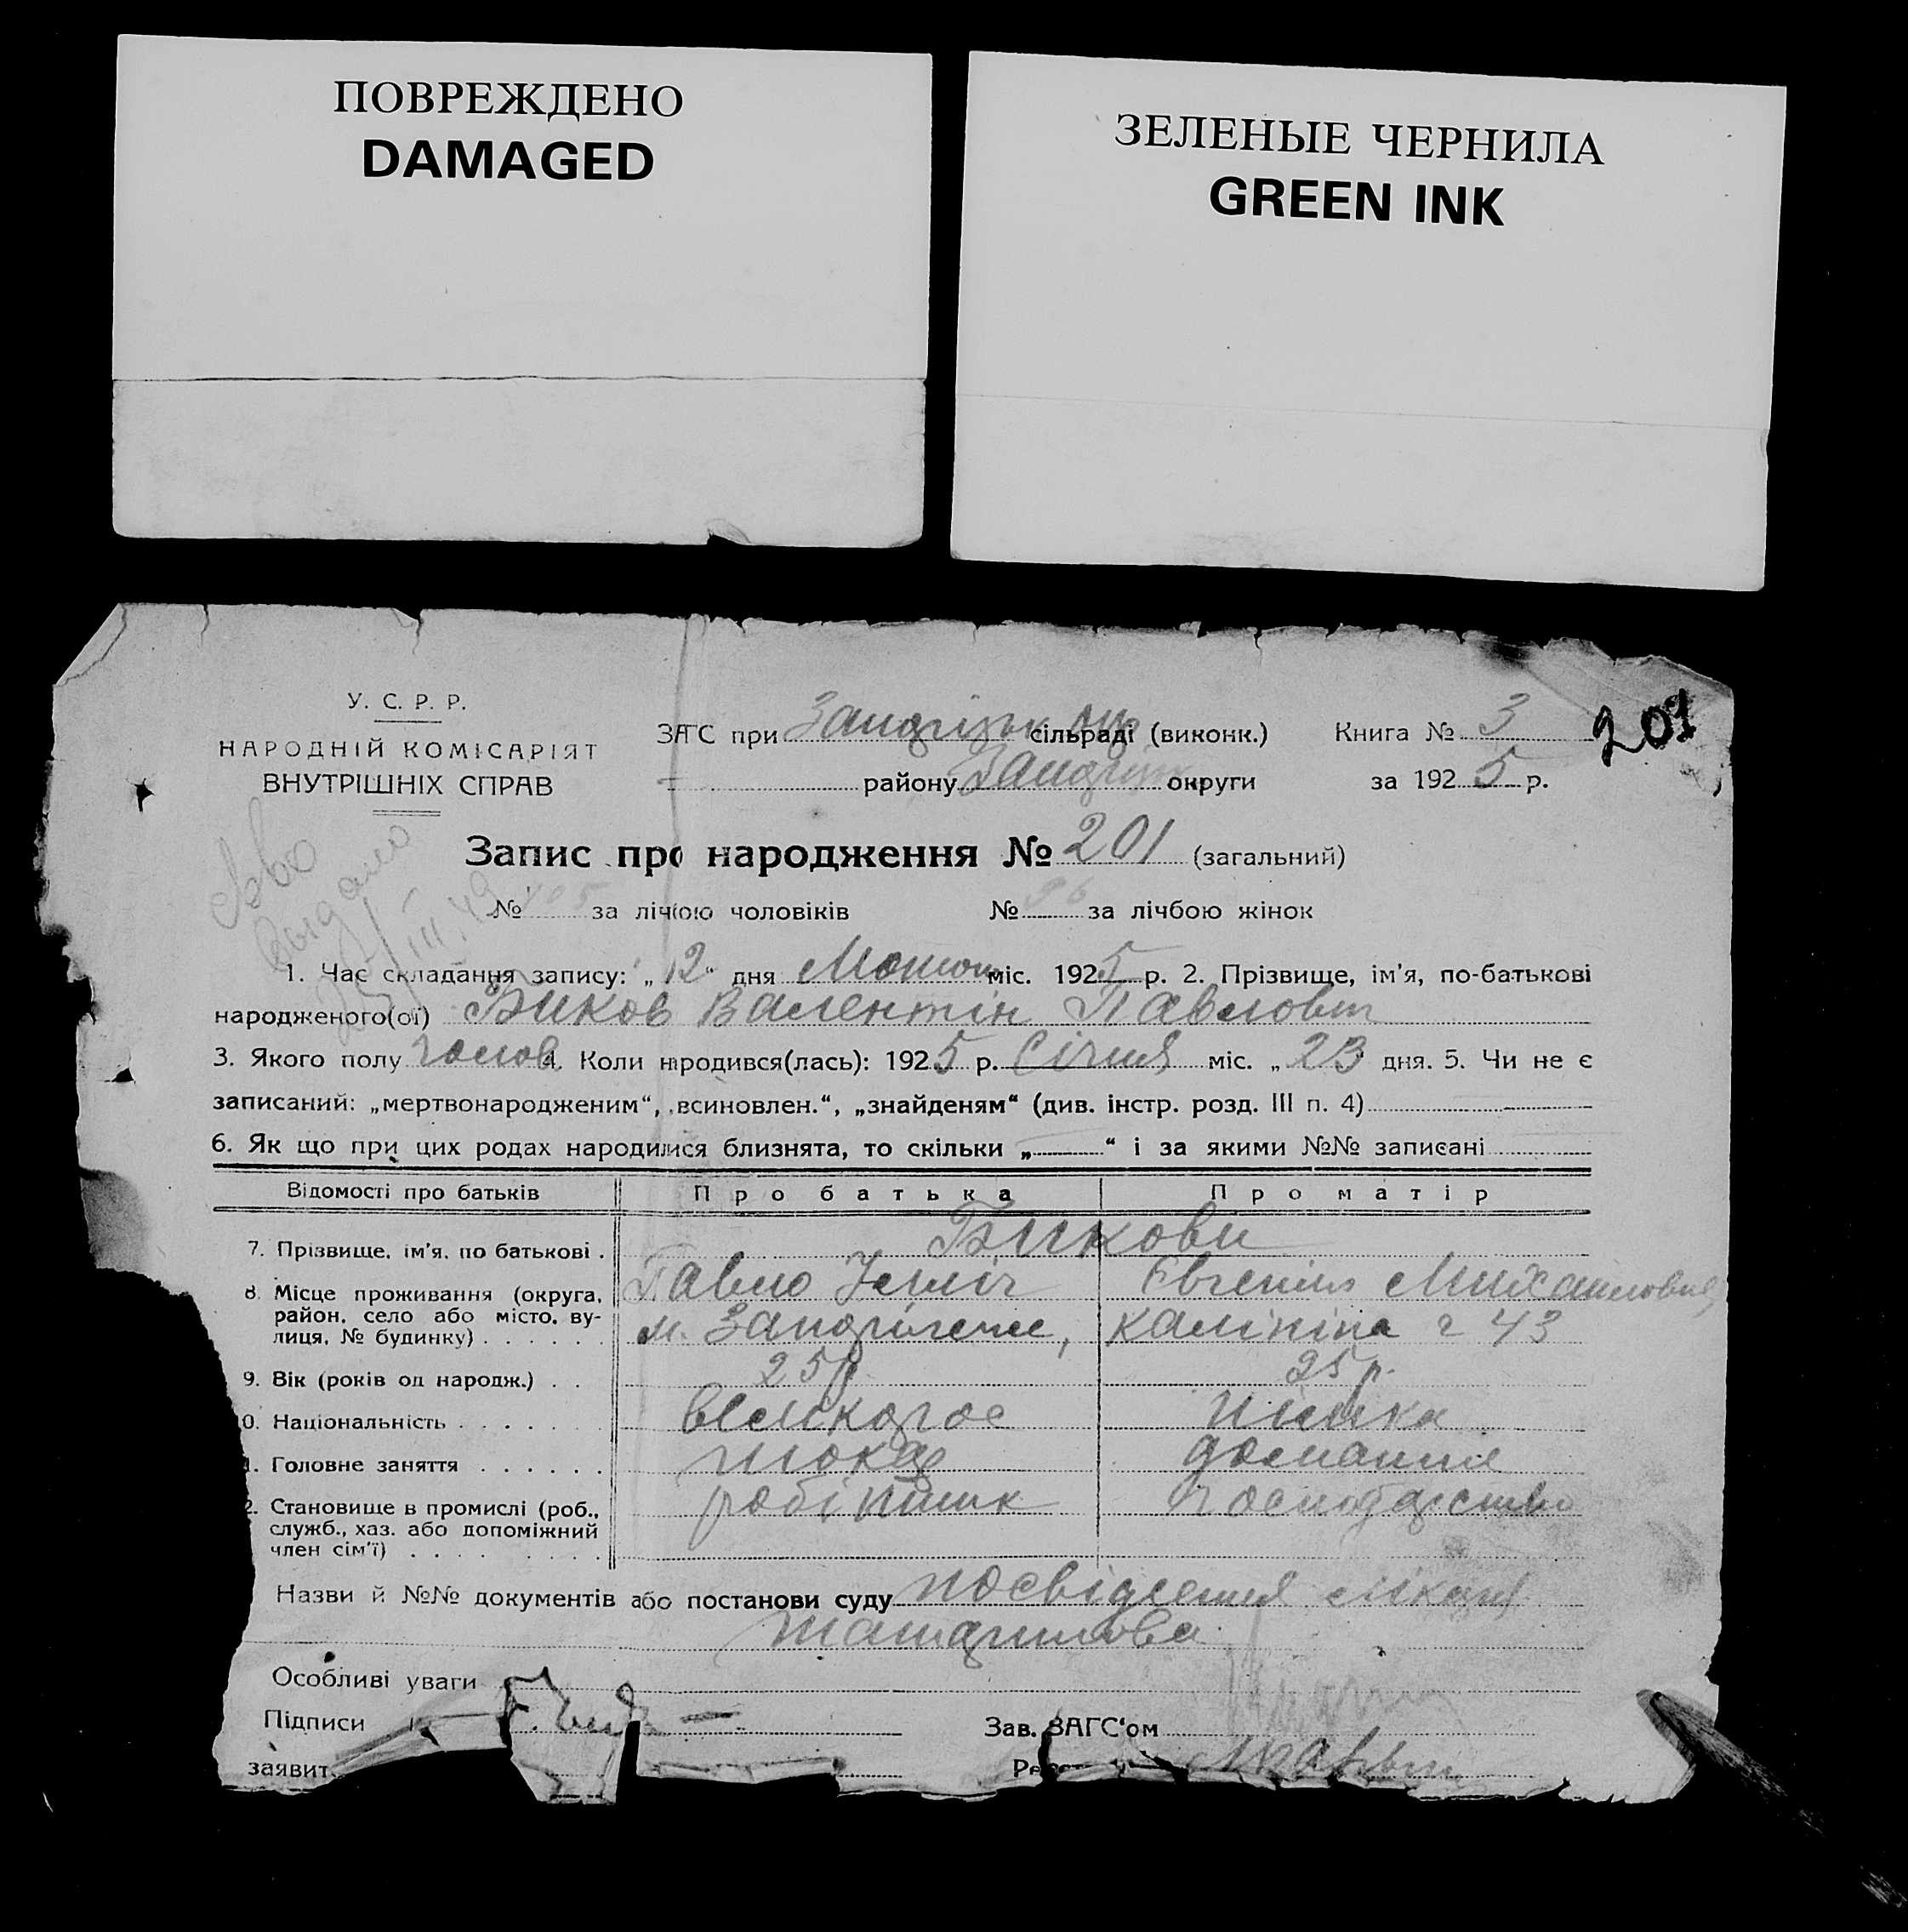 ПОВРЕЖДЕНО
DAMAGED
ЗЕЛЕНЫЕ ЧЕРНИЛА
GREEN INK
У. С. Р. Р.
НАРОДНІЙ КОМІСАРІЯТ
ВНУТРІШНІХ СПРАВ
ЗАГС при сільраді (виконк.)
району округи
Книга № 3
201
за 1925 р.
Запис про народження № 201 (загальний)
№ 105 за лічбою чоловіків № 96 за лічбою жінок
выдано
1. Час складання запису: „12“ дня міс. 1925 р. 2. Прізвище, ім'я, по-батькові
народженого(ої) Биков Валентін Павлович
3. Якого полу чолов 4. Коли народився(лась): 1925 р. Січня міс. „23 дня. 5. Чи не є
записаний: „мертвонародженим“, „всиновлен.“, „знайденям“ (див. інстр. розд. III п. 4)
6. Як що при цих родах народилися близнята, то скільки „ “ і за якими №№ записані
Відомості про батьків Про батька Про матір
7. Прізвище, ім'я, по батькові . Бикови
Павло Євгенія Михайловна
8. Місце проживання (округа, район, село або місто, вулиця, № будинку) . . . . . м. Запоріжже, Калініна 43
9. Вік (років од народж.) . . 25 р. 25 р.
0. Національність . . . . . великорос німка
1. Головне заняття . . . . . . токар домашнє
2. Становище в промислі (роб., служб., хаз. або допоміжний член сім'ї) . . . . робітник господарство
Назви й №№ документів або постанови суду посвідчення лікаря
Особливі уваги
Підписи
Зав. ЗАГС'ом
заявит